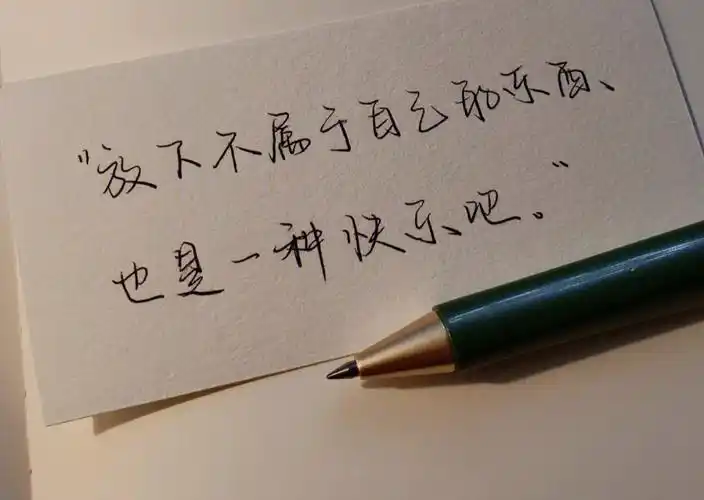 “放下不属于自己的东西、
也是一种快乐吧。”